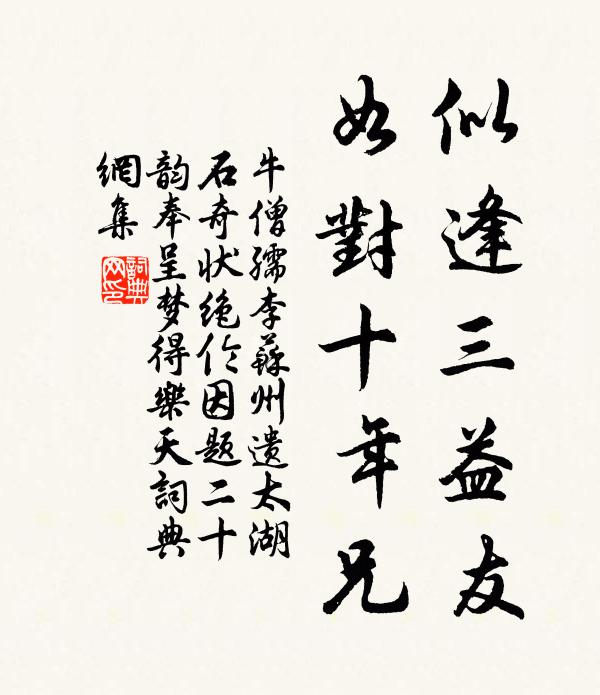 似逢三益友
如對十年兄
牛僧孺李蘇州遺太湖
石奇狀絕伦因題二十
韵奉呈梦得樂天詞典
網集
詞典网印